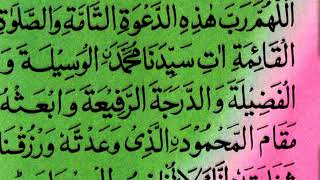 اَللّٰهُمَّ رَبَّ هٰذِهِ الدَّعْوَةِ التَّامَّةِ وَالصَّلٰوةِ
الْقَائِمَةِ اٰتِ سَيِّدَنَا مُحَمَّدَ ࣙالْوَسِيْلَةَ وَ
الْفَضِيْلَةَ وَالدَّرَجَةَ الرَّفِيْعَةَ وَابْعَثْهُ
مَقَامَ الْمَحْمُوْدَ ࣙالَّذِىْ وَعَدْتَّهٗ وَرْزُقْنَا